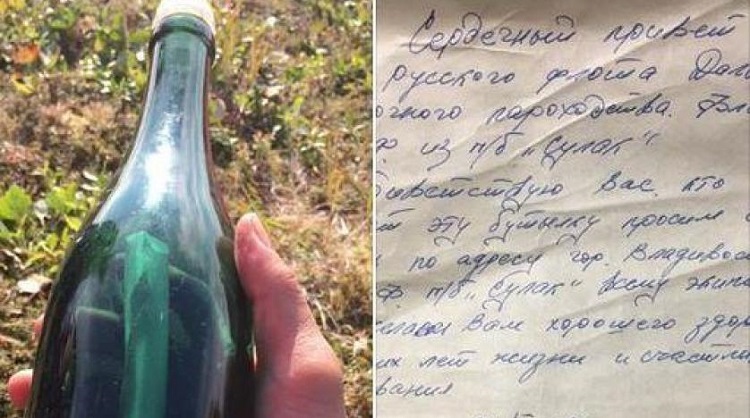 Сердечный привет
русского флота Дал
очного пароходства.
из т/б „Сулак“
ветствую Вас, кто
эту бутылку просим
по адресу гор. Владивос
т/б „Сулак“ всему экип
Вам хорошего здор
их лет жизни и счастли
вания